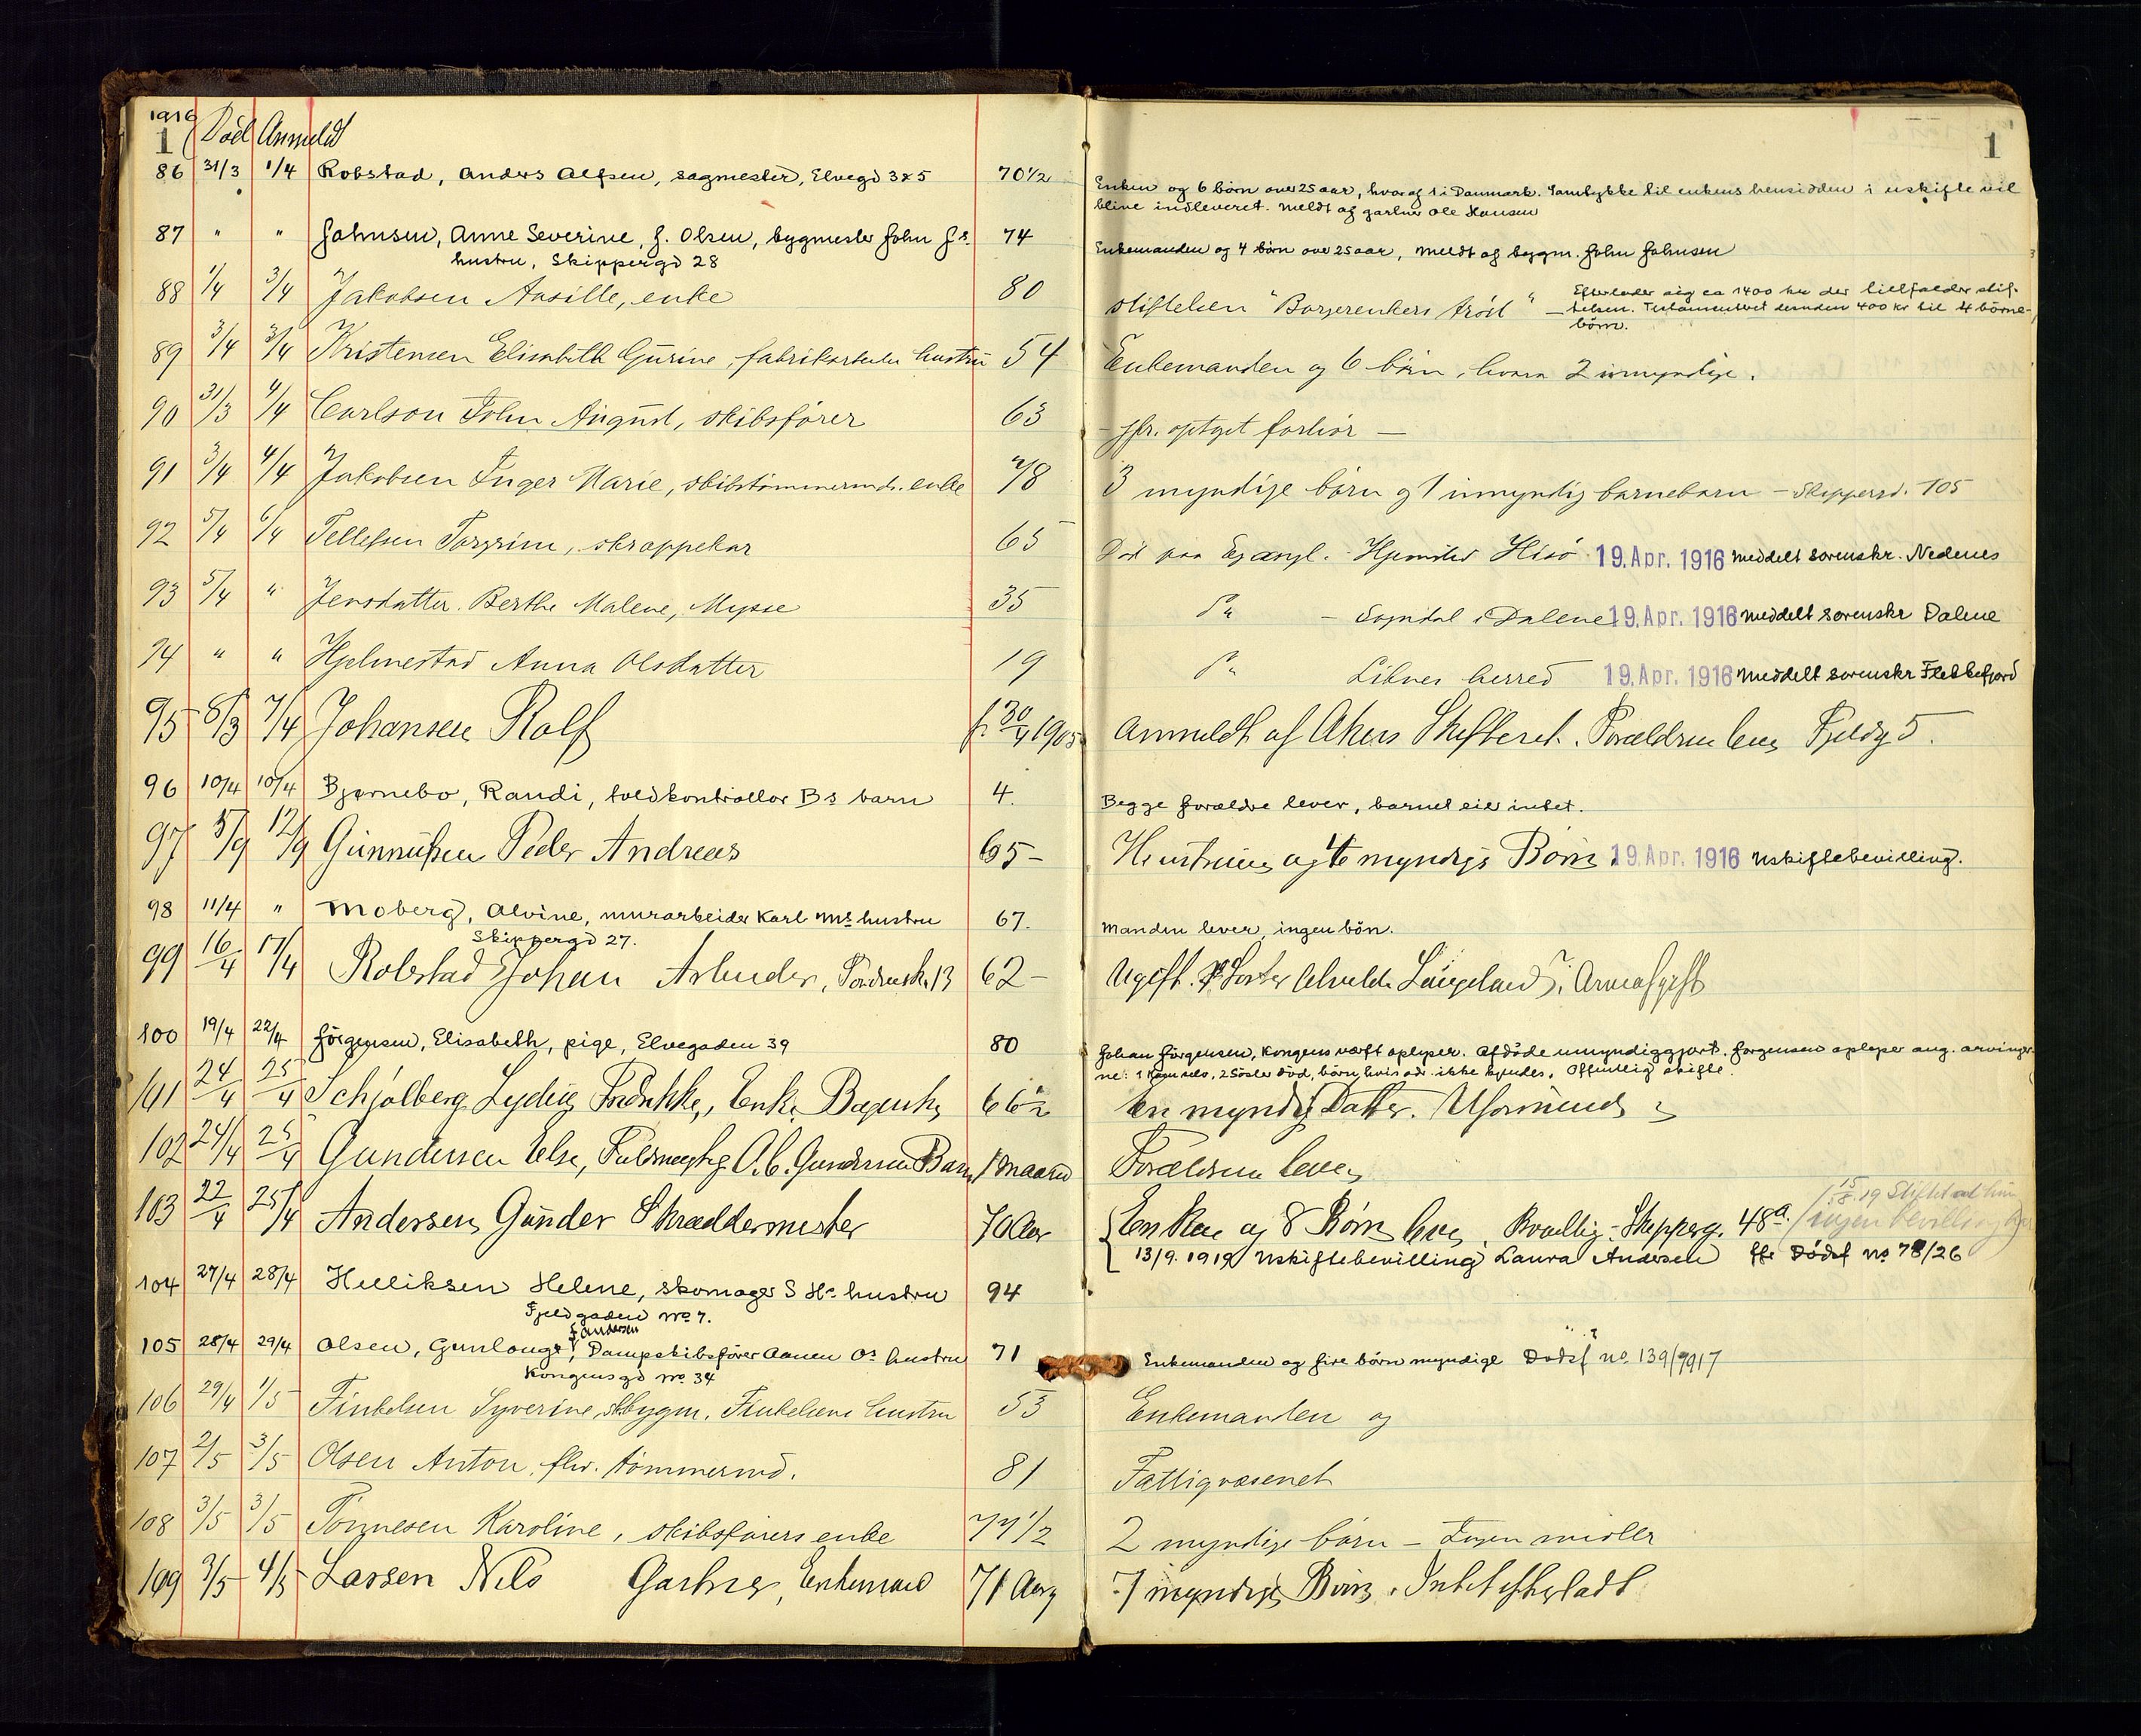 1916
1 Död Anmeldt
1
86 31/3 1/4 Robstad, Anders Alfsen, sagmester, Elvegd 385 70 1/2
Enken og 6 börn over 25 aar, hvoraf 1 i Danmark. Samtykke til enkens hensidden i uskifte vil
blive indleveret. Meldt af gartner Ole Hansen
87 " " Johnsen, Anne Severine, f. Olsen, bygmester John Js. 74
hustru, Skippergd 28
Enkemanden og 4 börn over 25 aar, meldt af bygm. John Johnsen
88 1/4 3/4 Jakobsen Assille, enke 80
stiftelsen "Borgerenkers tröst" — Efterlader sig ca 1400 kr der tilfalder stif-
telsen. Testamenteret desuden 400 kr til 4 börne-
börn.
89 3/4 3/4 Kristensen Elisabeth Gurine, fabrikarbeider hustru 54
Enkemanden og 6 börn, hvora 2 umyndige.
90 31/3 4/4 Carlson John August, skibsförer 63
- jfr. optaget forhör —
91 3/4 4/4 Jakobsen Inger Marie, skibstömmermds. enke 78
3 myndige börn og 1 umyndig barnebarn — Skippergd. 105
92 5/4 6/4 Tellefsen Torgrim, skrappekar 65
Död paa Egangl. - Hjemsted Hisö 19. Apr. 1916 meddelt sorenskr. Nedenes
93 5/4 " Jensdatter Berthe Malene, Mysse 35
" — Sogndal i Dalene 19. Apr. 1916 meddelt sorenskr Dalene
94 " " Hjelmestad Anna Olsdatter 19
" Liknes herred 19. Apr. 1916 meddelt sorenskr Flekkefjord
95 8/3 7/4 Johansen Rolf f. 30/4 1905
Anmeldt af Akers Skifteret. Forældrene lever Fjeldg 5.
96 10/4 10/4 Bjørnebo, Randi, toldkontrollør Bs barn 4.
Begge forældre lever, barnet eier intet.
97 5/9 12/9 Gunnufsen Peder Andreas 65 —
Hustruen og 6 myndige Börn. 19. Apr. 1916 uskiftebevilling.
98 11/4 " Moberg, Alvine, murarbeider Karl Ms hustru 67.
Skippergd 27.
Manden lever, ingen börn.
99 16/4 17/4 Robstad Johan Arbeider, 13 62 —
Ugift. Söster Langeland
100 19/4 22/4 Jörgensen, Elisabeth, pige, Elvegaden 39 80
Johan Jörgensen, Kongens værft oplyser. Afdöde umyndiggjort. Jörgensen oplyser ang. arvinger-
ne: 1 2 söster död, börn, hvis adr. ikke kjendes. Offentlig skifte.
101 24/4 25/4 Schjölberg Lydia Fredrikke, Enke 66 1/2
En myndig Datter. Uformuende
102 24/4 25/4 Gundersen Else, Fuldmægtig O. C. Gundersens Barn 1 maaned
Forældrene lever
103 22/4 25/4 Andersen Gunder Skræddermester 70 Aar
Enken og 8 Börn lever. Skipperg. 48a. 15/8.19
13/9. 1919 uskiftebevilling Laura Andersen jfr Dödsf no 78/26
104 27/4 28/4 Helliksen Helene, skomager S Hs hustru 94
Fjeldgaden No 7.
105 28/4 29/4 Olsen, Gunlouge f Andersen, Dampskibsförer Aanen Os hustru 71
Kongensgd No 34
Enkemanden og fire börn myndige Dödsf no. 139/1917
106 29/4 1/5 Finkelsen Syverine, skbygm. Finkelsens hustru 53
Enkemanden og
107 2/5 3/5 Olsen Anton, fhv. tömmermd. 81
Fattigvæsenet
108 3/5 3/5 Tönnesen Karoline, skibsförers enke 77 1/2
2 myndige börn — Ingen midler
109 3/5 4/5 Larsen Nils Gartner, Enkemand 71 Aar
7 myndige Börn. Intet efterladt